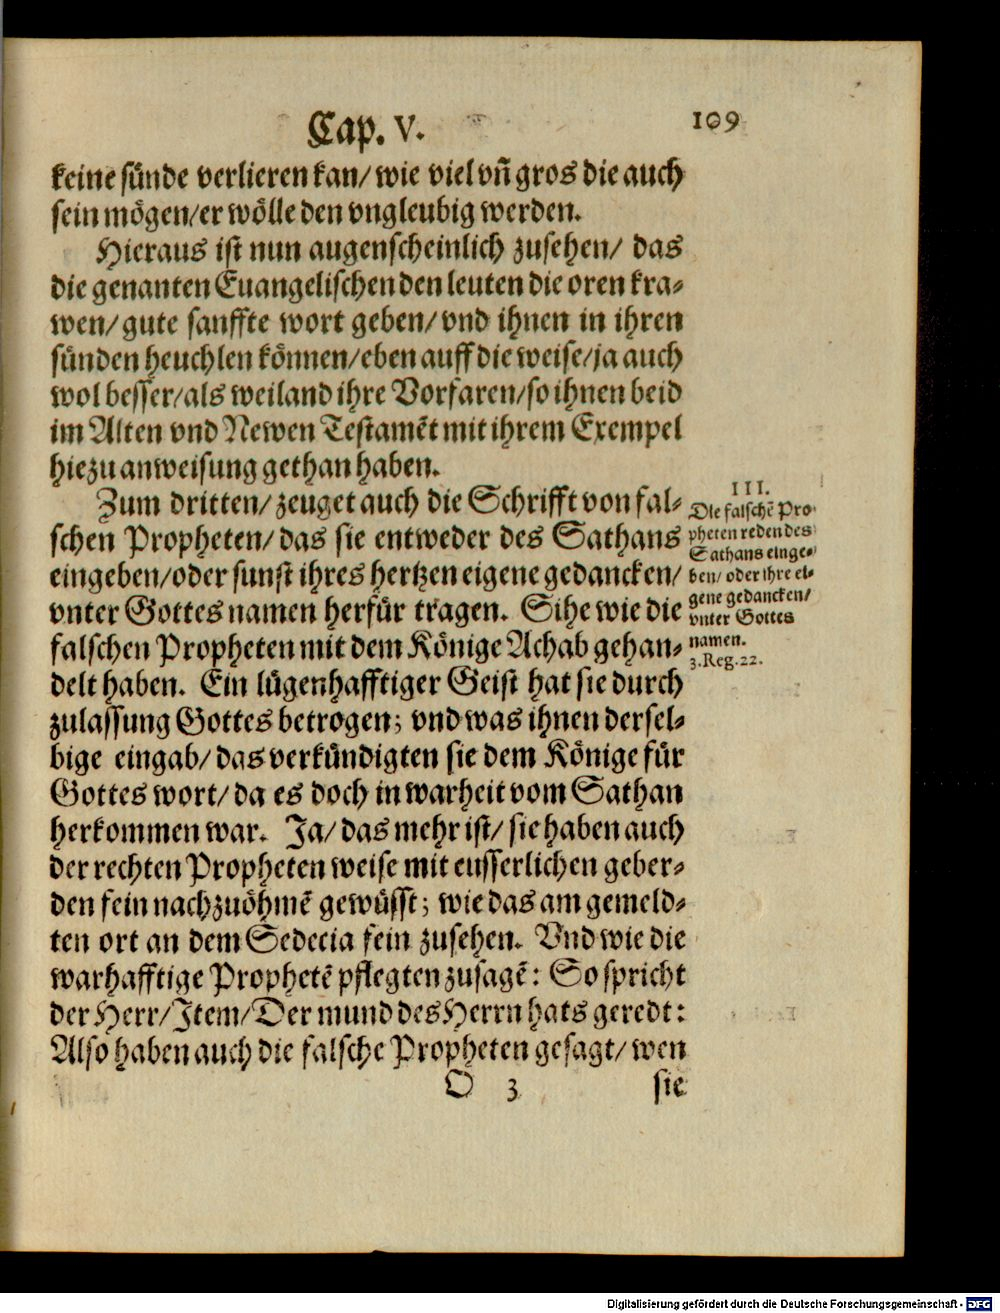 Cap. V. 109
keine sünde verlieren kan/ wie viel vñ gros die auch
sein mögen/ er wölle den vngleubig werden.
Hieraus ist nun augenscheinlich zusehen/ das
die genanten Euangelischen den leuten die oren kra⸗
wen/ gute sanffte wort geben/ vnd ihnen in ihren
sünden heuchlen können/ eben auff die weise/ ja auch
wol besser/ als weiland ihre Vorfaren/ so ihnen beid
im Alten vnd Newen Testamẽt mit ihrem Exempel
hiezu anweisung gethan haben.
Zum dritten/ zeuget auch die Schrifft von fal⸗
schen Propheten/ das sie entweder des Sathans
eingeben/ oder sunst ihres hertzen eigene gedancken/
vnter Gottes namen herfür tragen. Sihe wie die
falschen Propheten mit dem Könige Achab gehan⸗
delt haben. Ein lügenhafftiger Geist hat sie durch
zulassung Gottes betrogen; vnd was ihnen dersel⸗
bige eingab/ das verkündigten sie dem Könige für
Gottes wort/ da es doch in warheit vom Sathan
herkommen war. Ja/ das mehr ist/ sie haben auch
der rechten Propheten weise mit eusserlichen geber⸗
den fein nachzuöhmẽ gewüsst; wie das am gemeld⸗
ten ort an dem Sedecia fein zusehen. Vnd wie die
warhafftige Prophetẽ pflegten zusagẽ: So spricht
der Herr/ Item/ Der mund des Herrn hats geredt:
Also haben auch die falsche Propheten gesagt/ wen
O 3 sie
III.
Die falschẽ Pro⸗
pheten reden des
Sathans einge⸗
ben/ oder ihre ei⸗
gene gedancken/
vnter Gottes
namen.
3. Reg. 22.
Digitalisierung gefördert durch die Deutsche Forschungsgemeinschaft - DFG